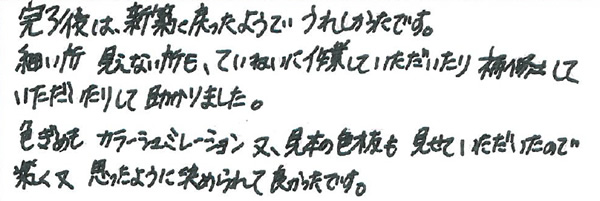 完了後は、新築に戻ったようでうれしかったです。
細い所 見えない所も、ていねいに作業していただいたり 補修して
いただいたりして助かりました。
色ぎめも カラーシュミレーション 又、見本の色板も 見せていただいたので
楽しく又 思ったように決められて良かったです。